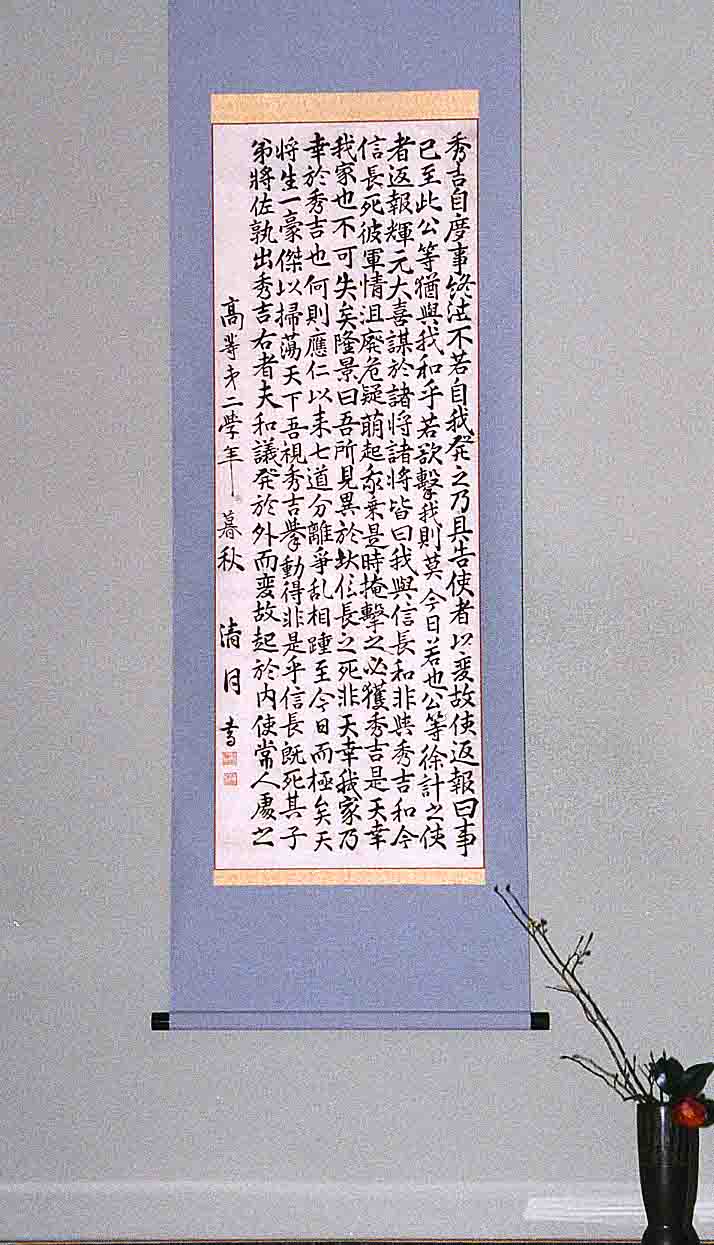 秀吉自度事終泄不若自我発之乃具告使者以変故使返報曰事
已至此公等猶與我和乎若欲擊我則莫今日若也公等徐計之使
者返報輝元大喜謀於諸将諸将皆曰我與信長和非與秀吉和今
信長死彼軍情沮廃危疑萌起乗是時掩擊之必獲秀吉是天幸
我家也不可失矣隆景曰吾所見異於此信長之死非天幸我家乃
幸於秀吉也何則應仁以来七道分離爭乱相踵至今日而極矣天
将生一豪傑以掃蕩天下吾視秀吉挙動得非是乎信長既死其子
弟将佐孰出秀吉右者夫和議発於外而変故起於内使常人處之
高等才二学年 暮秋 清月書